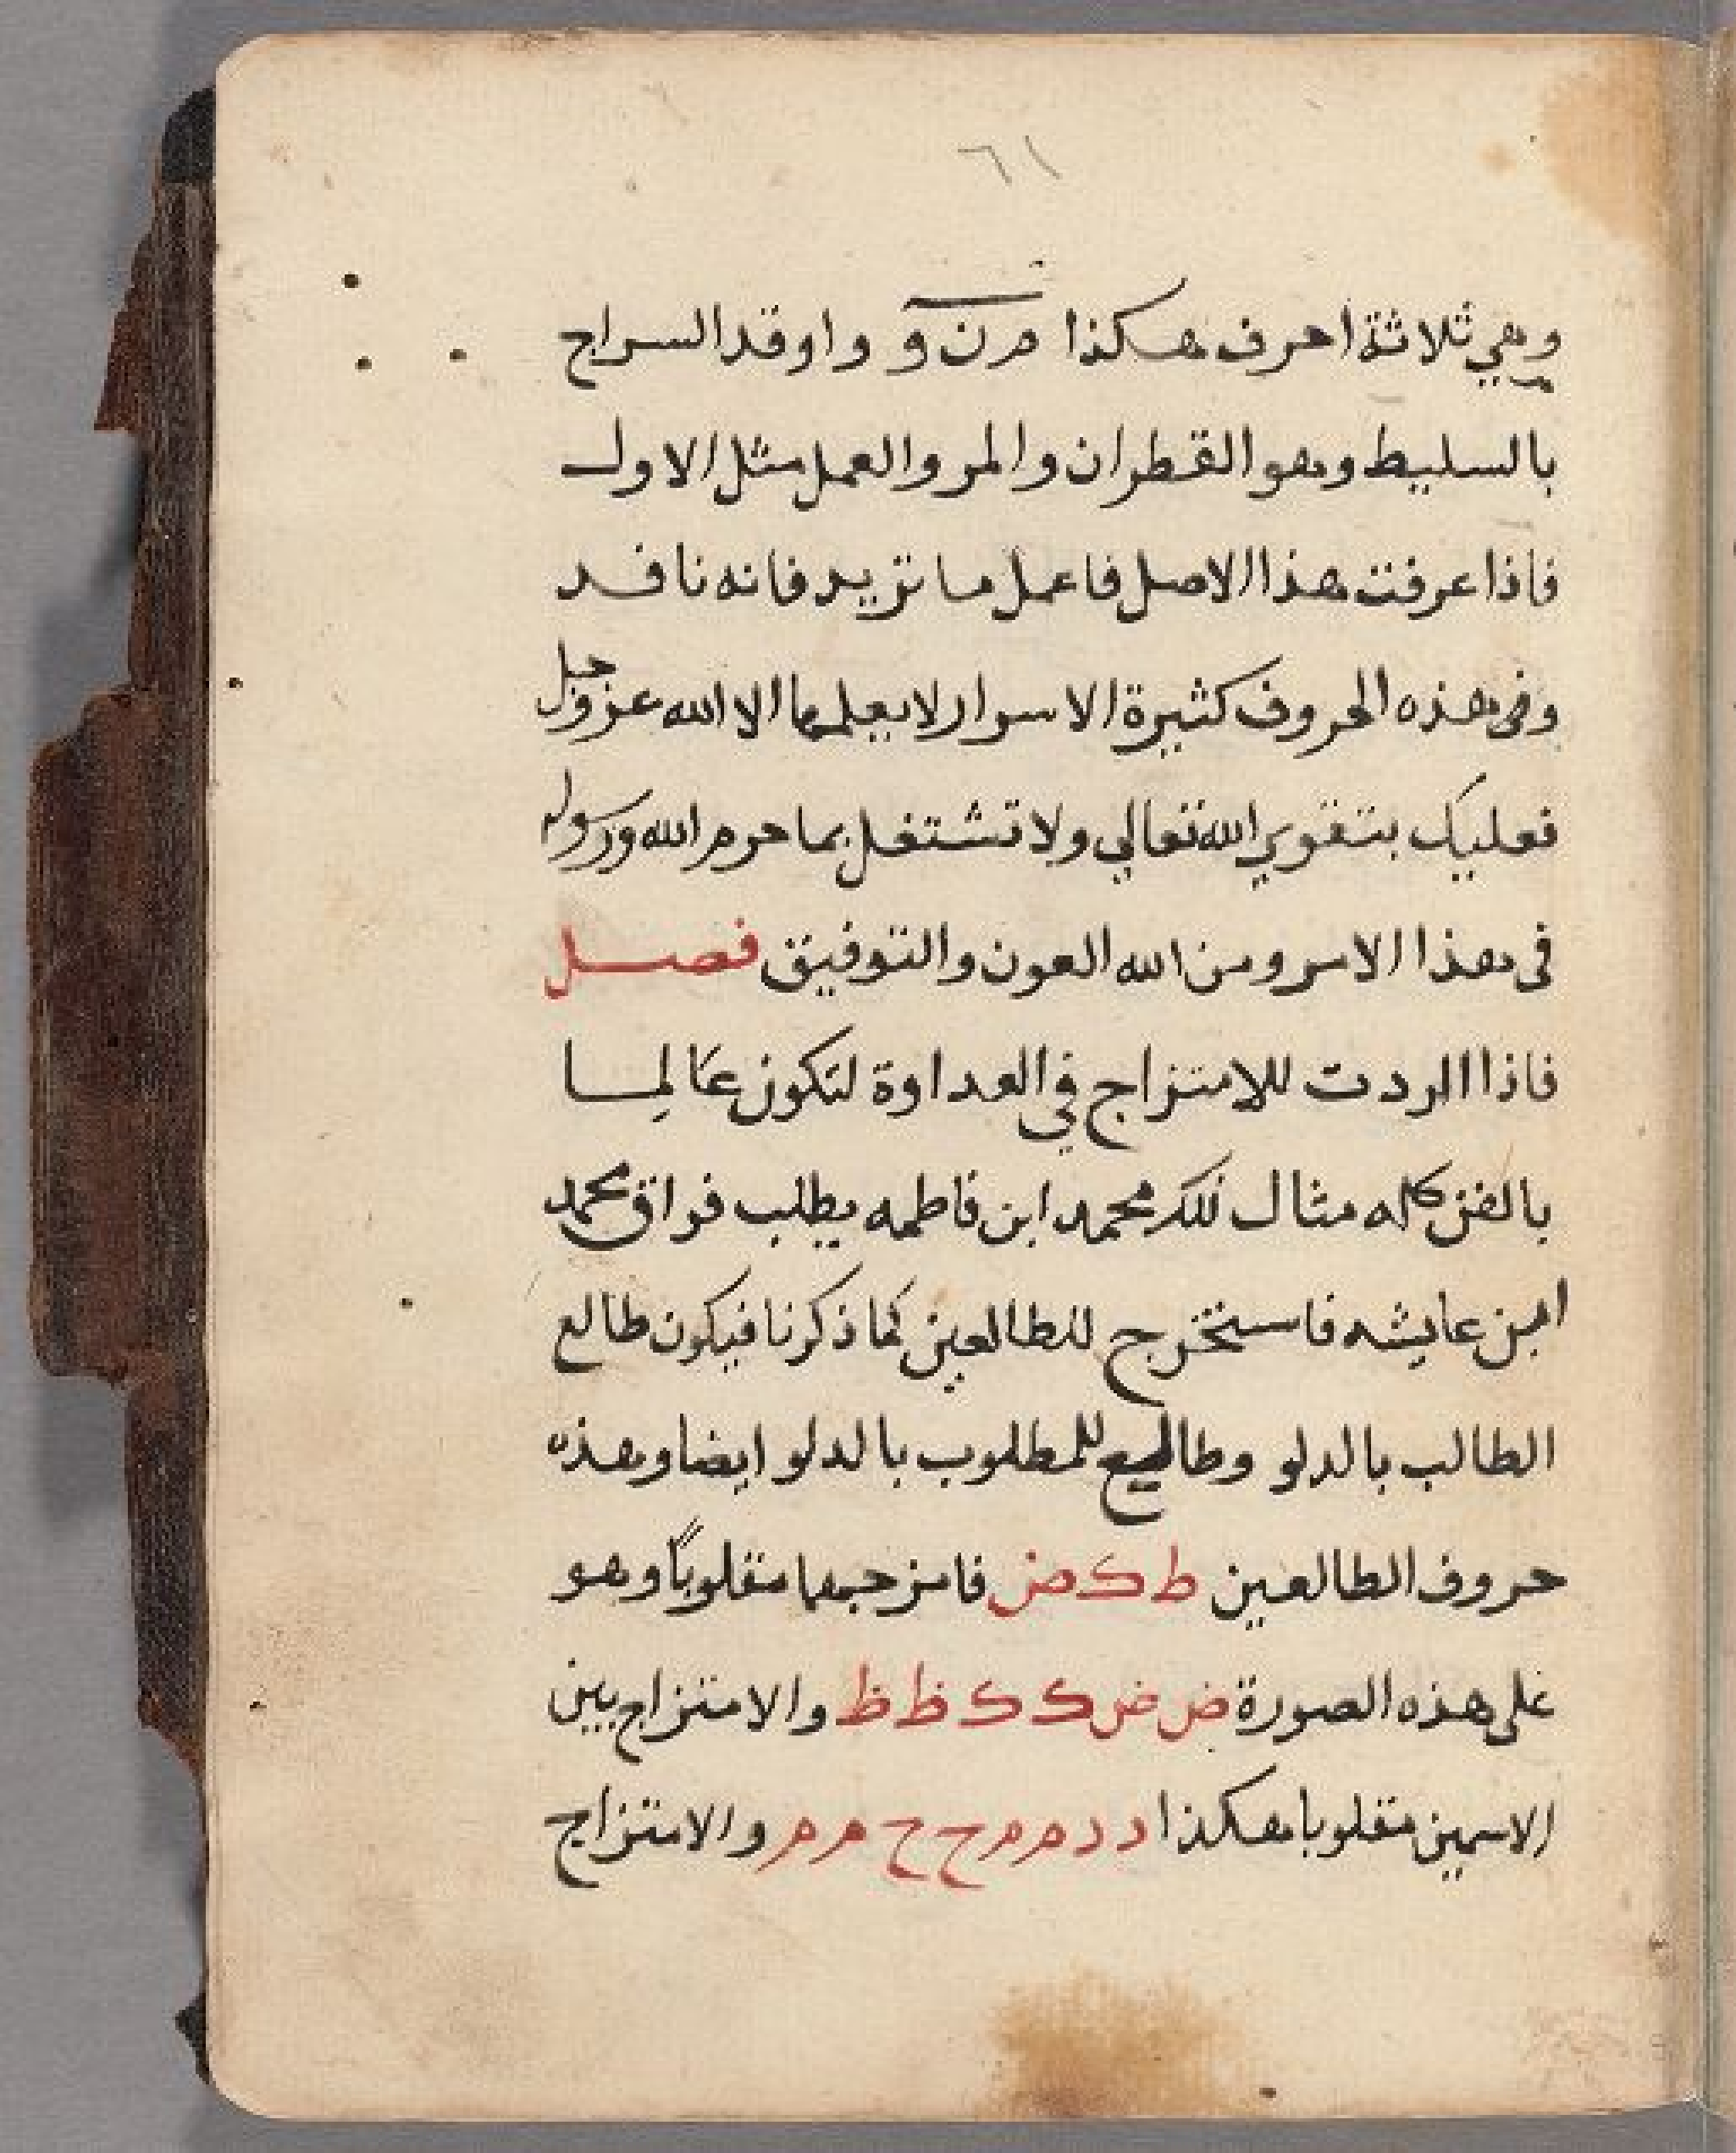 ٦١
وهي ثلاثة احرف هكذا م ن و واوقد السراج
بالسليط وهو القطران والمر والعمل مثل الاول
فاذا عرفت هذا الاصل فاعمل ما تريد فانه نافد
وفي هذه الحروف كثيرة الاسرار لا يعلمها الا الله عز وجل
فعليك بتقوي الله تعالي ولا تشتغل بما حرم الله ورسوله
في هذا الامر ومن الله العون والتوفيق فصل
فاذا اردت للامتزاج في العداوة لتكون عالما
بالفن كله مثال ذلك محمد ابن فاطمه يطلب فراق محمد
ابن عايشه فاستخرج للطالعين كما ذكرنا فيكون طالع
الطالب بالدلو وطالع للمطلوب بالدلو ايضا وهذه
حروف الطالعين ط ك ض فامزجهما مقلوباً وهو
على هذه الصورة ض ض ك ك ظ ظ والامتزاج بين
الاسمين مقلوبا هكذا د د م م ح ح م م والامتزاج